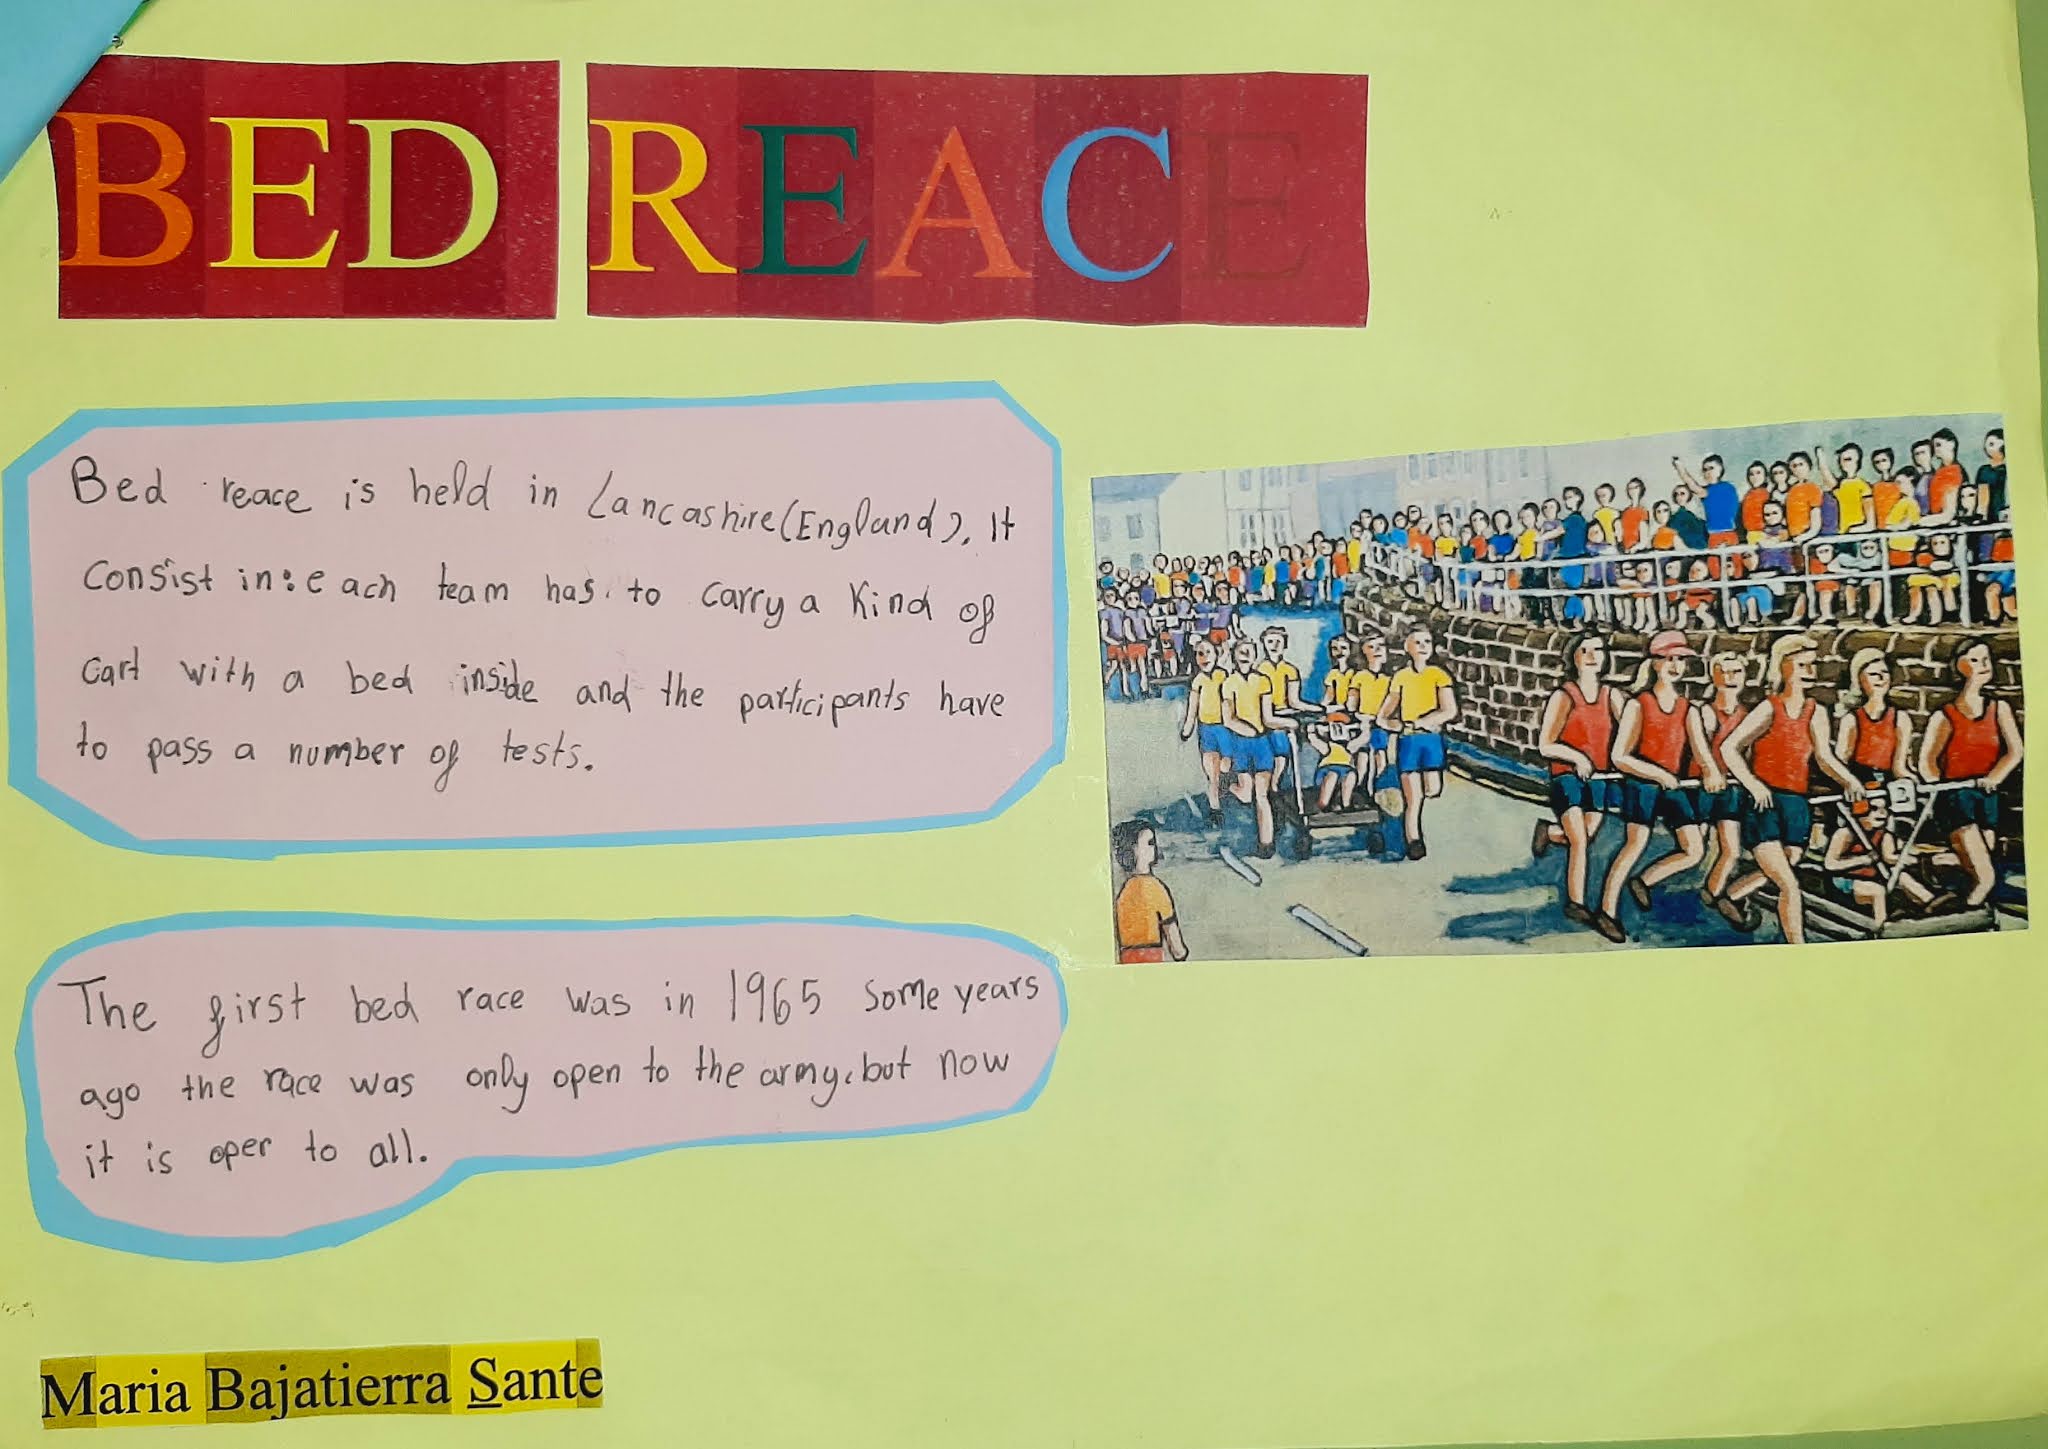 BED REACE
Bed reace is held in Lancashire (England). It
consist in: each team has to carry a kind of
cart with a bed inside and the participants have
to pass a number of tests.
The first bed race was in 1965 some years
ago the race was only open to the army, but now
it is oper to all.
Maria Bajatierra Sante